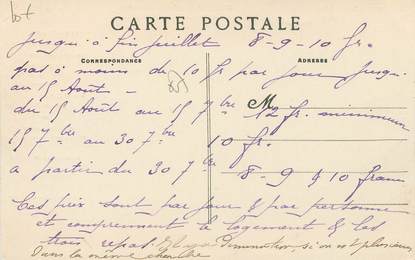 lot
CARTE POSTALE
jusqu'à fin juillet 8-9-10 fr.
CORRESPONDANCE ADRESSES
pas à moins de 10 fr par jour jusqu'
au 15 Août -
du 15 Août au 15 7bre M 12 fr. minimum
15 7bre au 30 7bre 10 fr.
a partir du 30 7bre 8-9 & 10 francs
Ces prix sont par jour & par personne
et comprennent le logement & les
trois repas. Il y a diminution, si on est plusieurs
dans la même chambre